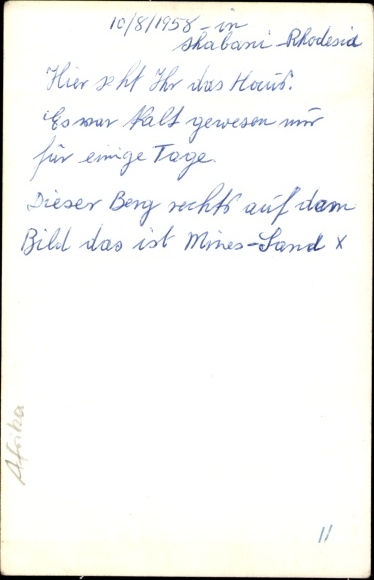 10/8/1958 - in
Shabani - Rhodesia
Hier seht Ihr das Haus.
Es war kalt gewesen nur
für einige Tage.
Dieser Berg rechts auf dam
Bild das ist Mines-Sand x
Afrika
11